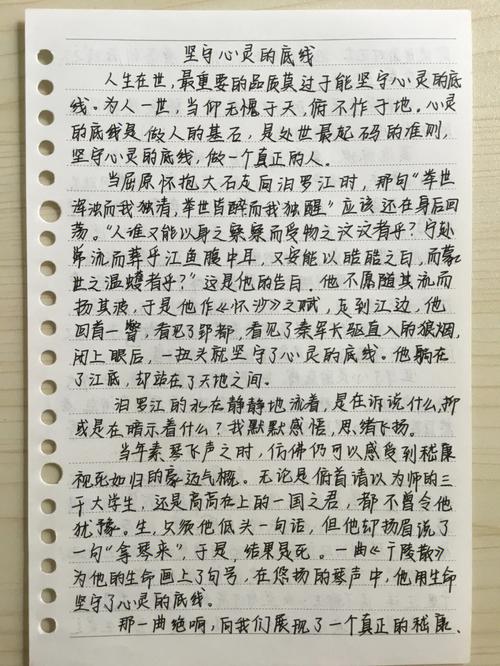 坚守心灵的底线
人生在世,最重要的品质莫过于能坚守心灵的底
线。为人一世,当仰无愧于天,俯不怍于地。心灵
的底线是做人的基石,是处世最起码的准则,
坚守心灵的底线,做一个真正的人。
当屈原怀抱大石走向汨罗江时,那句“举世
浑浊而我独清,举世皆醉而我独醒”应该还在身后回
荡。“人谁又能以身之察察而受物之汶汶者乎?宁赴
常流而葬乎江鱼腹中耳,又安能以皓皓之白,而蒙
世之温蠖者乎?”这是他的告白。他不愿随其流而
扬其波,于是他作《怀沙》之赋,走到江边,他
回首一瞥,看见了郢都,看见了秦军长驱直入的狼烟,
闭上眼后,一扭头就坚守了心灵的底线。他躺在
了江底,却站在了天地之间。
汨罗江的水在静静地流着,是在诉说什么,抑
或是在暗示着什么?我默默感悟,思绪飞扬。
当年素琴飞声之时,仿佛仍可以感受到嵇康
视死如归的豪迈气概。无论是俯首请以为师的三
千大学生,还是高高在上的一国之君,都不曾令他
犹豫。生,只须他低头一句话,但他却扬眉说了
一句“拿琴来”于是,结果是死。一曲《广陵散》
为他的生命画上了句号,在悠扬的琴声中,他用生命
坚守了心灵的底线。
那一曲绝响,向我们展现了一个真正的嵇康、